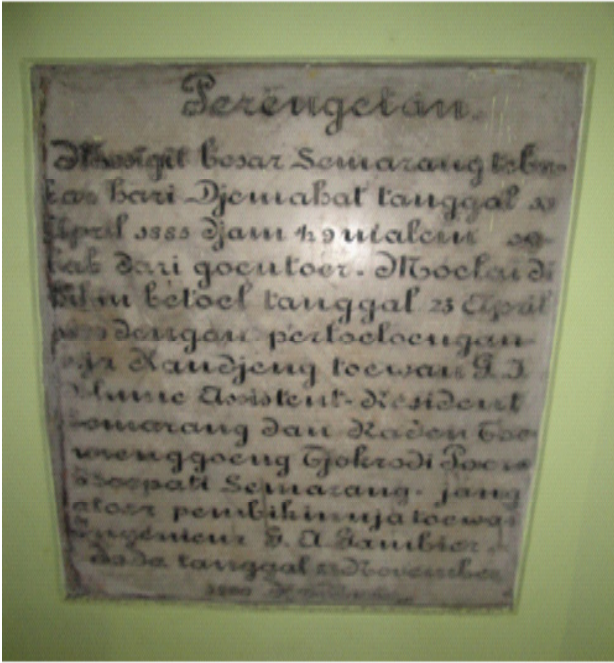 Perengetan.
Messigit besar Semarang teba-
kar hari Djemahat tanggal
April 1885 djam ½ 9 malem se-
bab dari goentoer. Moelai di
bikin betoel tanggal 23 April
dengan pertoeloengan-
nja Kandjeng toewan G. I.
Blume Assistent-Resident
Semarang dan Raden Toe-
menggoeng Tjokrodi Poero
Boepati Semarang. jang
atoer pembikinnja toewan
Ingenieur G. A. Gambier.
tanggal November